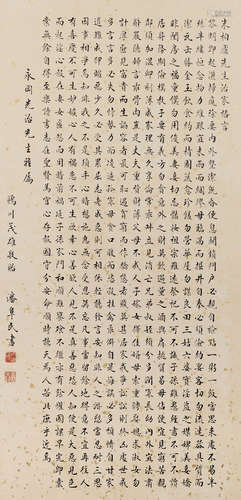 朱柏廬先生治家格言
黎明即起灑掃庭除要內外整潔既昏便息關鎖門戶必親自檢點一粥一飯當思來處不易半
絲半縷恆念物力維艱宜未雨而綢繆毋臨渴而掘井自奉必須儉約宴客切勿流連器具質而
潔瓦缶勝金玉飲食約而精園蔬愈珍饈勿營華屋勿謀良田三姑六婆實淫盜之媒婢美妾嬌
非閨房之福童僕勿用俊美妻妾切忌艷妝祖宗雖遠祭祀不可不誠子孫雖愚經書不可不讀
居身務期質樸教子要有義方勿貪意外之財勿飲過量之酒與肩挑貿易毋佔便宜見窮苦親
鄰須加溫卹刻薄成家理無久享倫常乖舛立見消亡兄弟叔姪須分多潤寡長幼內外宜法肅
辭嚴聽婦言乖骨肉豈是丈夫重貲財薄父母不成人子嫁女擇佳婿毋索重聘娶媳求淑女勿
計厚奩見富貴而生諂容者最可恥遇貧窮而作驕態者賤莫甚居家戒爭訟訟則終凶處世戒
多言言多必失勿恃勢力而凌逼孤寡毋貪口腹而恣殺牲禽乖僻自是悔誤必多頹惰自甘家
道難成狎暱惡少久必受其累屈志老成急則可相依輕聽發言安知非人之譖訴當忍耐三思
因事相爭焉知非我之不是須平心暗想施惠無念受恩莫忘凡事當留餘地得意不宜再往人
有喜慶不可生妒忌心人有禍患不可生喜幸心善欲人見不是真善惡恐人知便是大惡見色
而起淫心報在妻女匿怨而用暗箭禍延子孫家門和順雖饔飧不繼亦有餘歡國課早完即囊
橐無餘自得至樂讀書志在聖賢為官心存君國守分安命順時聽天為人若此庶乎近焉
永周先治先生雅屬
鴨川茂雄敬貽
潘阜民書